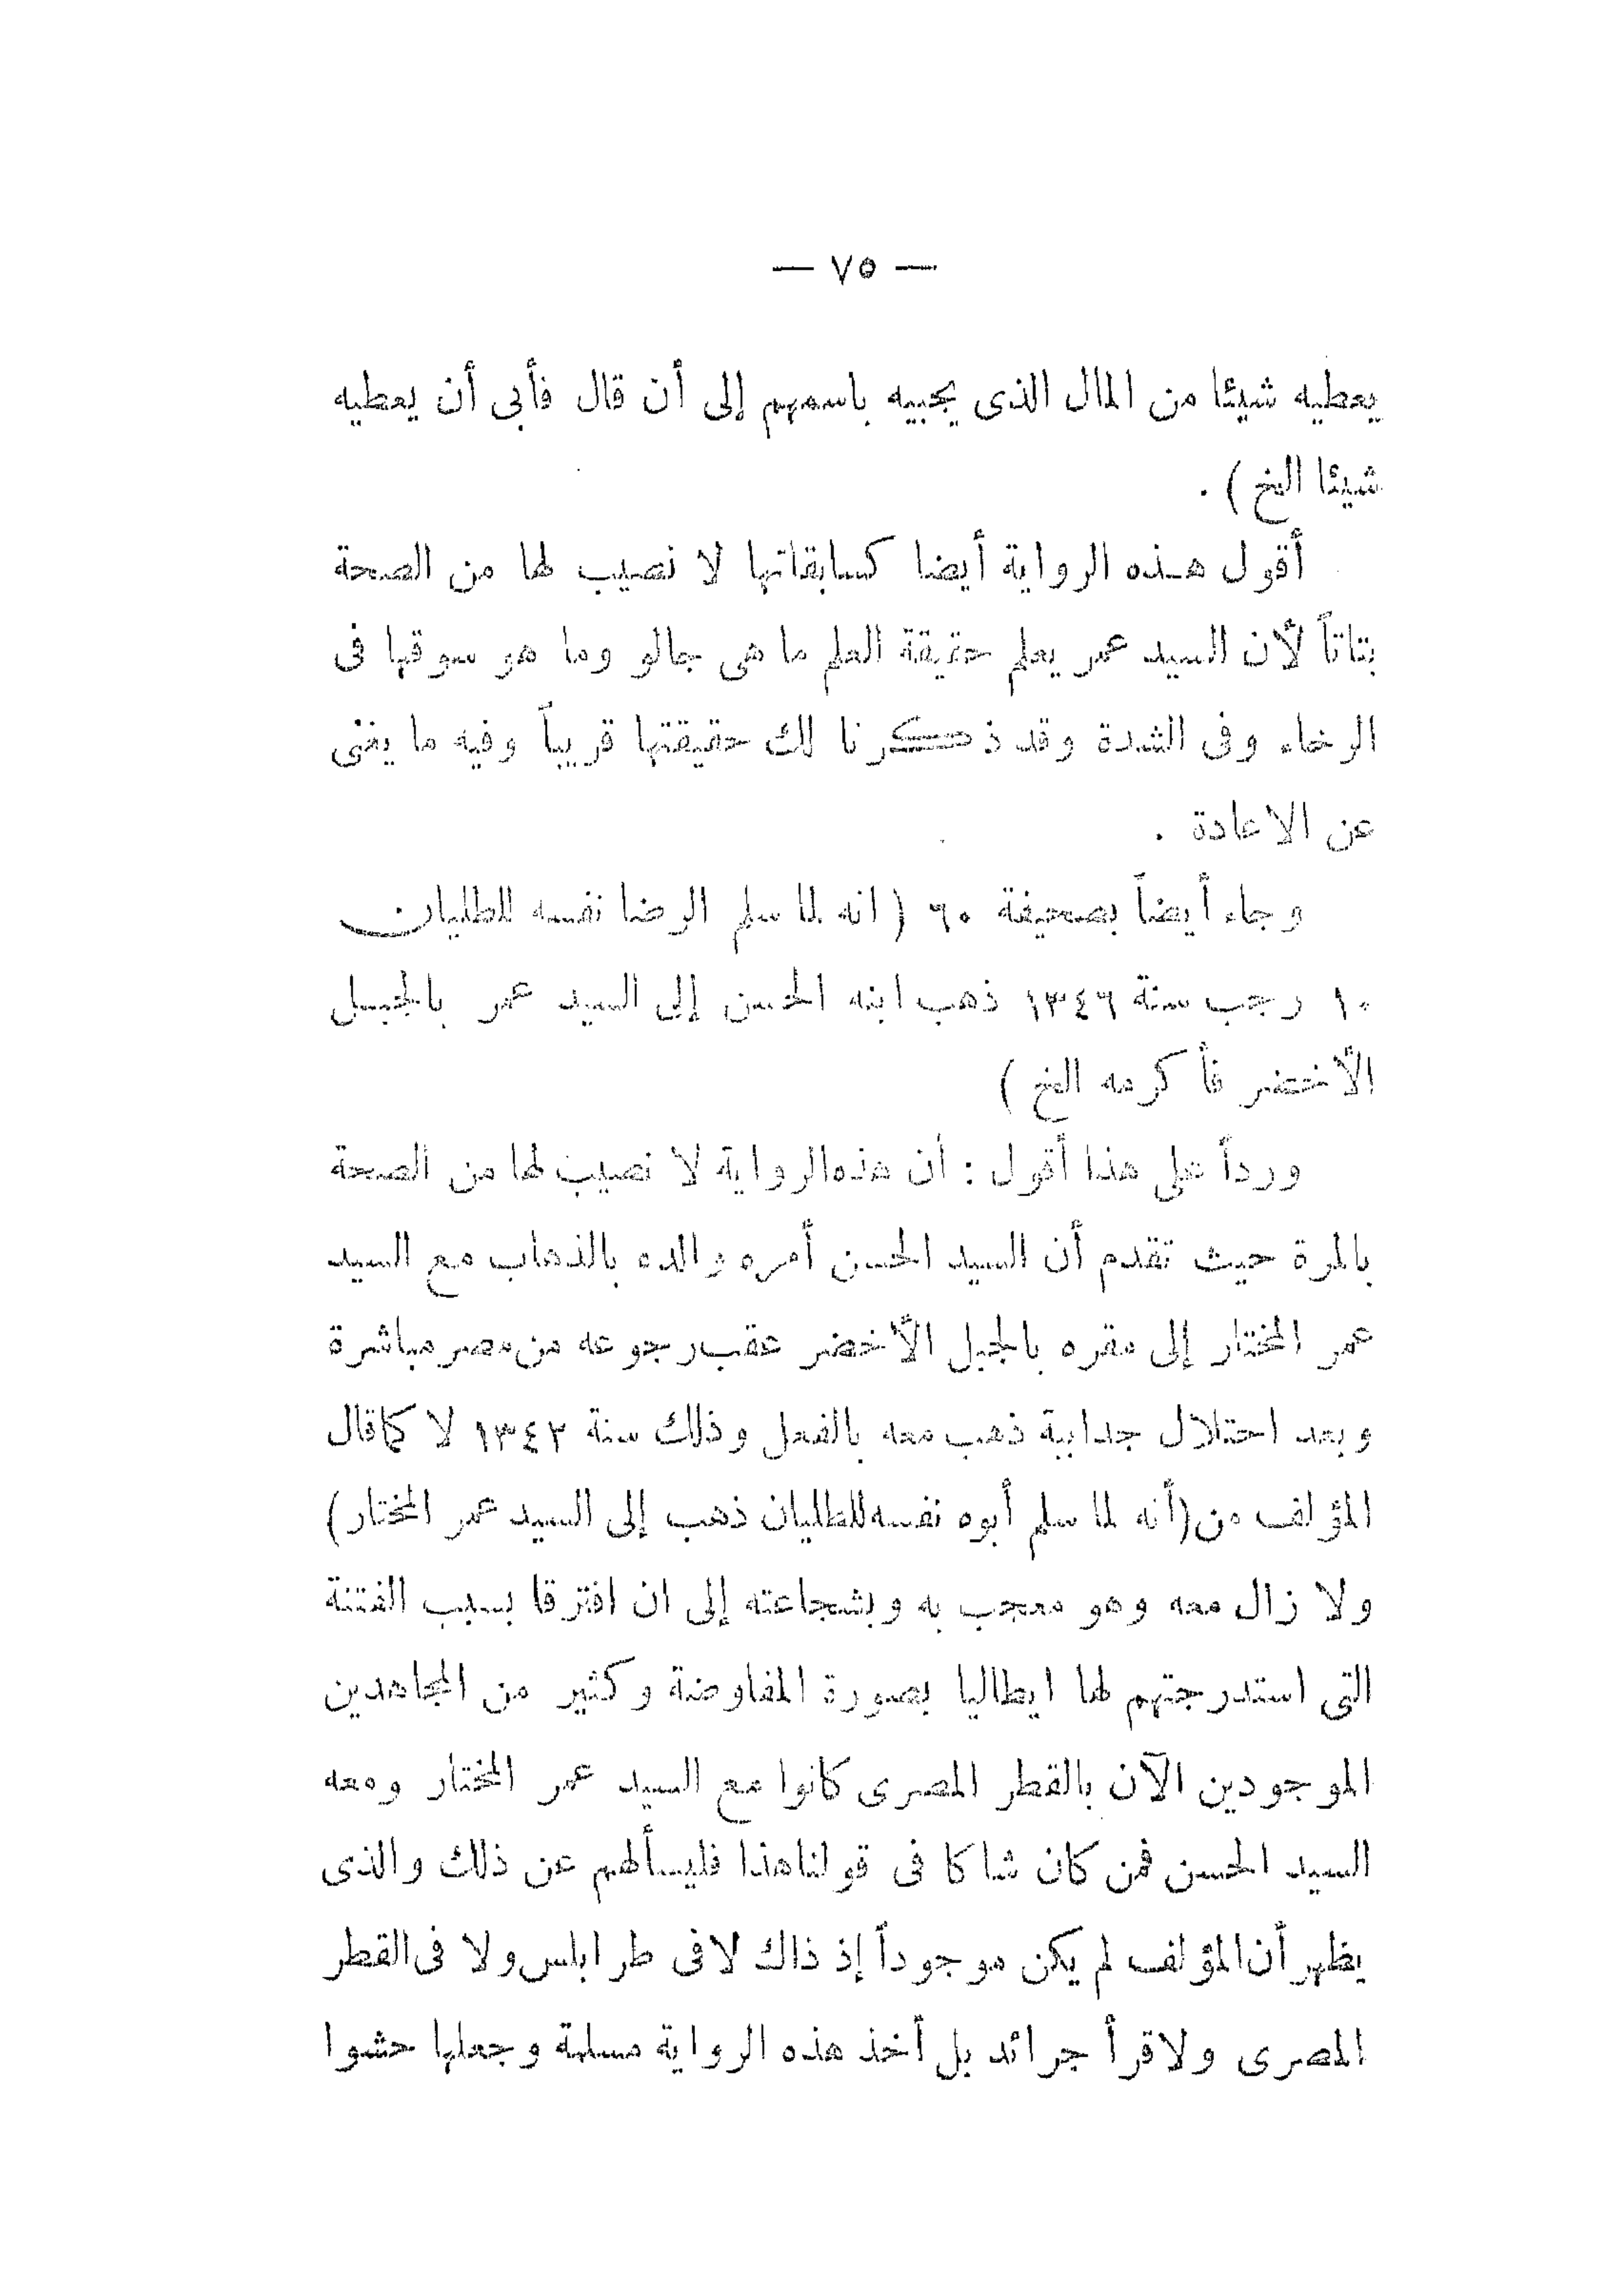 — ٧٥ —
يعطيه شيئا من المال الذى يجبيه باسمهم إلى أن قال فأبى أن يعطيه
شيئا الخ ) .
أقول هذه الرواية أيضا كسابقاتها لا نصيب لها من الصحة
بتاتاً لأن السيد عمر يعلم حقيقة العلم ما هى جالو وما هو سوقها فى
الرخاء وفى الشدة وقد ذكرنا لك حقيقتها قريباً وفيه ما يغنى
عن الاعادة .
وجاء أيضاً بصحيفة ٦٠ ( انه لما سلم الرضا نفسه للطليان
١٠ رجب سنة ١٣٤٦ ذهب ابنه الحسن إلى السيد عمر بالجبل
الأخضر فأكرمه الخ )
ورداً على هذا أقول : أن هذه الرواية لا نصيب لها من الصحة
بالمرة حيث تقدم أن السيد الحسن أمره والده بالذهاب مع السيد
عمر المختار إلى مقره بالجبل الأخضر عقب رجوعه من مصر مباشرة
وبعد احتلال جدابية ذهب معه بالفعل وذلك سنة ١٣٤٢ لا كما قال
المؤلف من (أنه لما سلم أبوه نفسه للطليان ذهب إلى السيد عمر المختار)
ولا زال معه وهو معجب به وبشجاعته إلى ان افترقا بسبب الفتنة
التى استدرجتهم لها ايطاليا بصورة المفاوضة وكثير من المجاهدين
الموجودين الآن بالقطر المصرى كانوا مع السيد عمر المختار ومعه
السيد الحسن فمن كان شاكا فى قولنا هذا فليسألهم عن ذلك والذى
يظهر أن المؤلف لم يكن موجوداً إذ ذاك لا فى طرابلس ولا فى القطر
المصرى ولا قرأ جرائد بل أخذ هذه الرواية مسلمة وجعلها حشوا